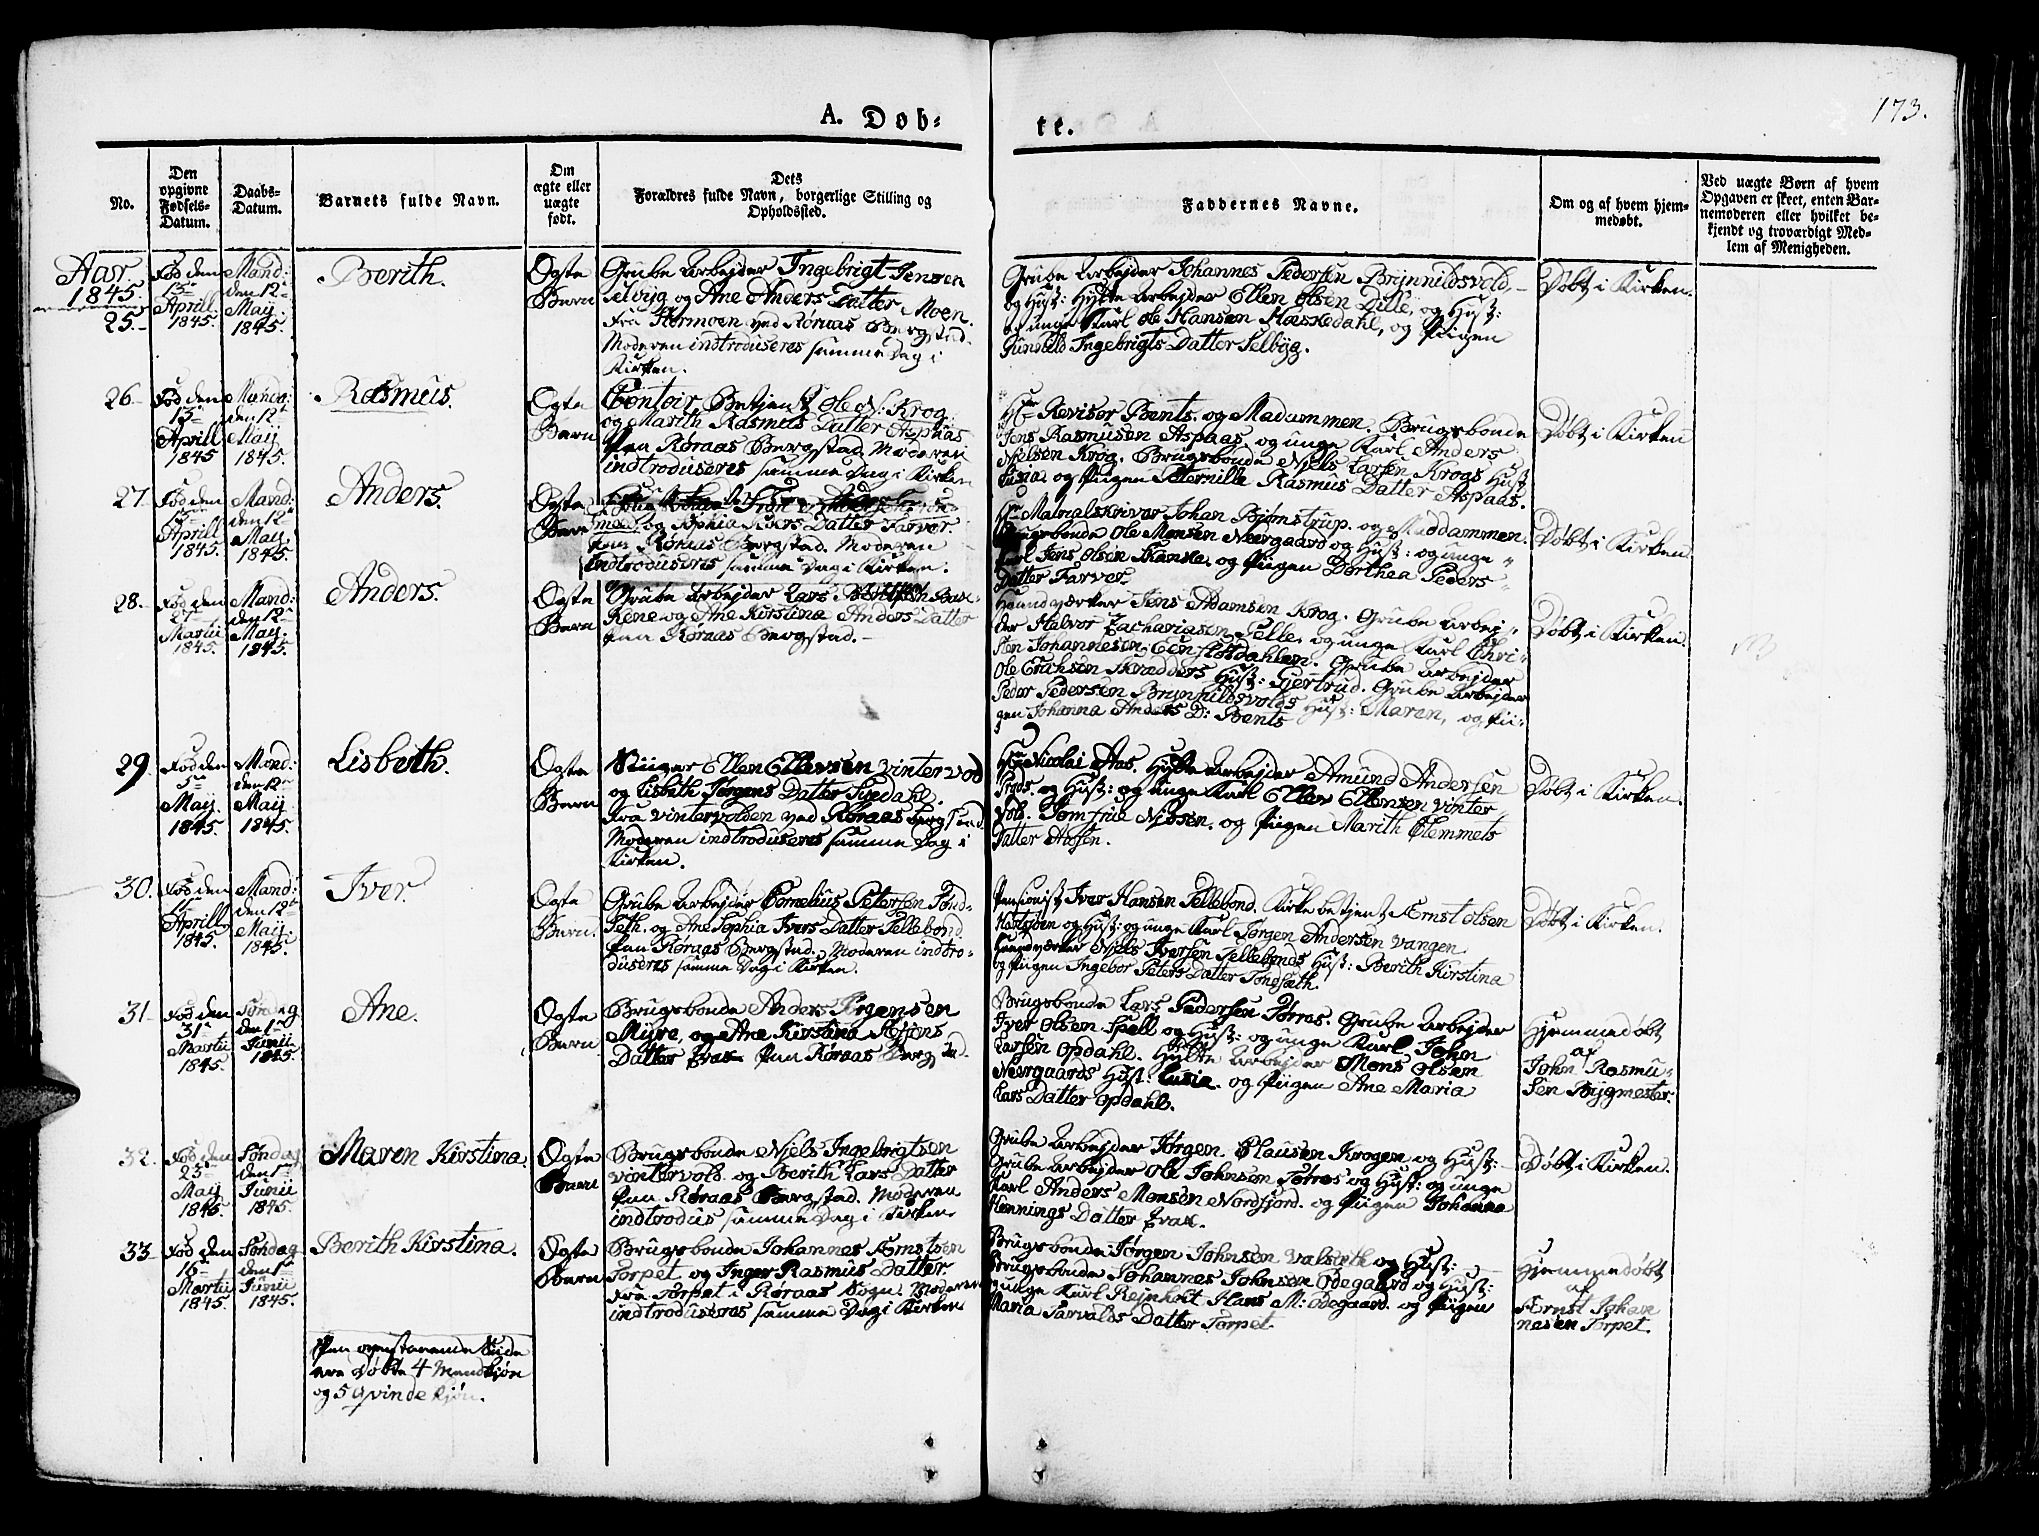 173.
A. Døb-
te.
No.
Den opgivne Fødsels-Datum.
Daabs-Datum.
Barnets fulde Navn.
Om ægte eller uægte født.
Dets
Forældres fulde Navn, borgerlige Stilling og
Opholdssted.
Faddernes Navne.
Om og af hvem hjem-
medøbt.
Ved uægte Børn af hvem
Opgaven er skeet, enten Bar-
nemoderen eller hvilket be-
kjendt og troværdigt Med-
lem af Menigheden.
Aar.
1845.
25.
Fød den
13de
Aprill
1845.
Mand:
den 12te
Maÿ.
1845.
Berith.
Ægte
Barn
Grube Arbejder Ingebrigt Jensen
Selbÿg og Ane Anders Datter Moen.
fra Flormoen ved Røraas Bergstad.
Moderen indtroduseres samme Dag i
Kirken.
Grube Arbejder Johannes Pedersen Brÿnnildsvold
og Hust: Hÿtte Arbejder Ellen Olsen Dille, og Hust:
unge Karl Ole Hansen Hæskedahl, og Piigen
Gunhild Ingebrigts Datter Selbÿg.
Døbt i Kirken.
26
Fød den
13de
Aprill
1845
Manda:
den 12te
Maÿ
1845.
Rasmus.
Ægte
Barn
Contoir Betjent Ole N: Krog
og Marith Rasmus Datter Aspaas
Paa Røraas Bergstad. Moderen
indtroduseres samme Dag i Kirken
Hr Revisor Bents. og Madammen. Brugsbonde
Jens Rasmusen Aspaas, og unge Karl Anders
Nielsen Krog. Brugsbonde Niels Larsen Krogs Hust
Lusia. og Piigen Peternille Rasmus Datter Aspaas.
Døbt i Kirken
27.
Fød den
13de
Aprill
1845.
Mand:
den 12te
Maÿ.
1845.
Anders.
Ægte
Barn
og Sophia Peders Datter Farver.
Paa Røraas Bergstad. Moderen
indtroduseres samme Dag i Kirken.
Hr Matrialskriver Johan Bjørnstrup. og Maddammen.
Brugsbonde Ole Monsen Neergaard og Hust: og unge
Karl Jens Olsen Skanke, og Piigen Dorthea Peders
Datter Farver
Døbt i Kirken.
28.
Fød den
27de
Martii
1845.
Mand:
den 12te
Maÿ.
1845.
Anders.
Ægte
Barn
Grube Arbejder Lars
og Ane Kirstina Anders Datter
Paa Røraas Bergstad.
Haandværker Jens Adamsen Krog. Grube Arbej
der Halvor Zachariasen Selle, og unge Karl Chri
sten Johannesen Eenslotdahlen. Grube Arbejder
Ole Erichsen Skradders Hust: Gjertrud. Grube Arbejder
Peder Pedersen Brÿnnildsvolds Hust: Maren, og Pii
gen Johanna Anders D: Bents
Døbt i Kirken.
29.
Fød den
5te
Maÿ
1845.
Mand:
den 12te
Maÿ
1845.
Lisbeth.
Ægte
Barn
Ellen Ellevsen Vintervol
og Lisbeth Jørgens Datter Svedahl.
fra Vintervolden ved Røraas Bergstad.
Moderen indtroduseres samme Dag i
Kirken.
Hr Nicolai Aas. Hÿtte Arbejder Amund Andersen
og Hust: og unge Karl Ellev Ellensen Vinter
vol. Jomfrue Nilsen. og Piigen Marith Clemmets
Datter Aassen.
Døbt i Kirken.
30.
Fød den
11te
Aprill
1845.
Mand:
den 12te
Maÿ.
1845.
Iver.
Ægte
Barn.
Grube Arbejder Cornelius Petersen Tønd-
seth. og Ane Sophia Ivers Datter Tellebond.
Paa Røraas Bergstad. Moderen indtro-
duseres samme Dag i Kirken.
Pensionist Iver Hansen Tellebond. Kirke bestjent Ærnst Olsen
og Hust: og unge Karl Jørgen Andersen Vangen
Haandværker Niels Iversen Tellebonds Hust: Berith Kirstina
og Piigen Ingebor Peters Datter Tøndsæth.
Døbt i Kirken.
31
Fød den
31te
Martii
1845.
Søndag
den 1ste
Junii
1845.
Ane.
Ægte
Barn
Brugsbonde Anders Jørgensen
Mÿre, og Ane Kirstina
Datter Evav Paa Røraas Bergstad.
Brugsbonde Lars Pedersen Torres. Grube Arbejder
Iver Olsen Spell og Hust: og unge Karl John
Larsen Opdahl. Hÿtte Arbejder Mons Olsen
Neergaards Hust: Lusia. og Piigen Ane Maria
Lars Datter Opdahl.
Hjemmedøbt
af
John Rasmu-
sen Bÿgmester.
32.
Fød den
23de
Maÿ
1845.
Søndag
den 1ste
Junii
1845.
Maren Kirstina.
Ægte
Barn
Brugsbonde Niels Ingebrigtsen
Vintervold. og Berith Lars Datter
Paa Røraas Bergstad. Moderen
indtrodus samme Dag i Kirken
Grube Arbejder Jørgen Clausen Krogen og Hust:
Grube Arbejder Ole Johnsen Torres og Hust: og unge
Karl Anders Monsen Nordfjord. og Piigen Johanna
Hennings Datter Evav.
Døbt i Kirken.
33
Fød den
16de
Martii
1845.
Søndag
den 1ste
Junii
1845.
Berith Kirstina.
Ægte
Barn
Brugsbonde Johannes Ærnstsen
Torpet og Inger Rasmus Datter
fra Torpet i Røraas Sogn. Moderen
indtroduseres samme Dag i Kirken
Brugsbonde Jørgen Johnsen Valsæth og Hust:
Brugsbonde Johannes Johnsen Odegaard og Hust:
unge Karl Rejnhort Hans M: Odegaard. og Piigen
Maria Tarvalds Datter Torpet
Hjemmedøbt
af
Ærnst Johan
nesen Torpet.
Paa ovenstaaende Side
ere Døbte 4 Mandkjøn
og 5 Qvindekjøn.